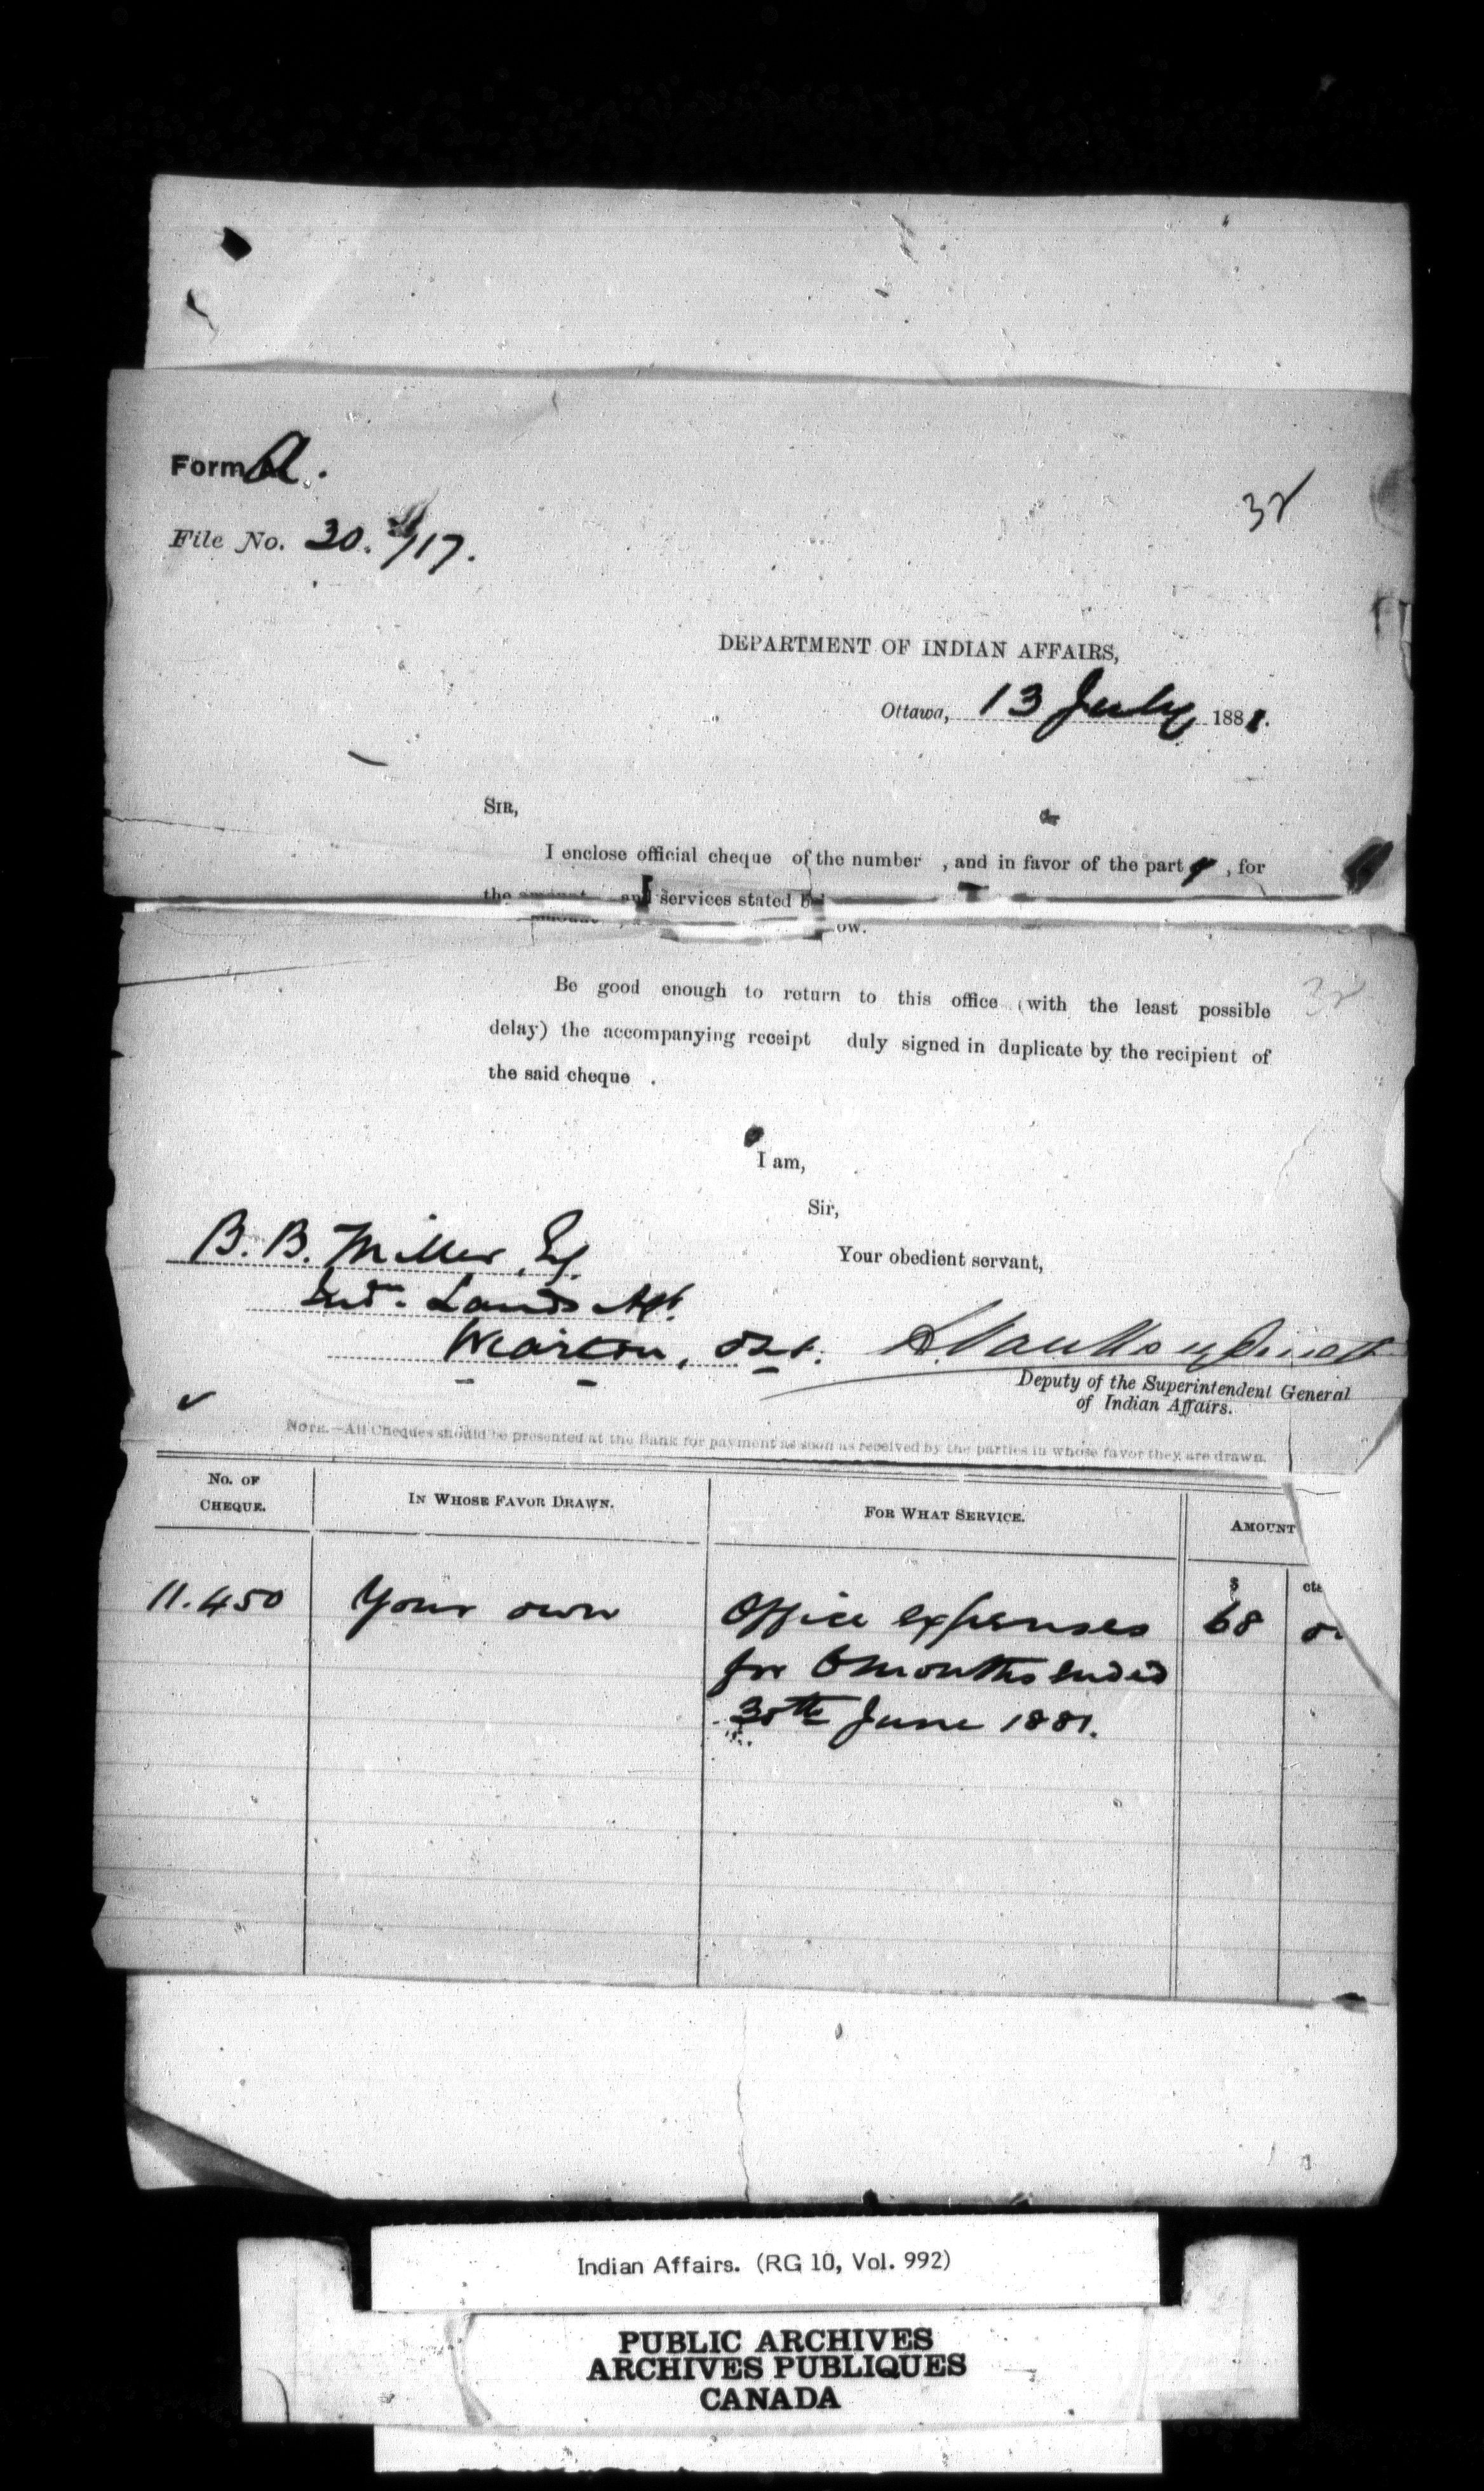 Form A.
32
File No. 30. /17.
DEPARTMENT OF INDIAN AFFAIRS,
Ottawa, 13 July 1881.
SIR,
I enclose official cheque of the number , and in favor of the party , for
the amount , and services stated below.
Be good enough to return to this office (with the least possible
32
delay) the accompanying receipt duly signed in duplicate by the recipient of
the said cheque .
I am,
Sir,
Your obedient servant,
B. B. Miller, Esq.
Indn. Lands Agt.
Wiarton, Ont.
L. Vankoughnet
Deputy of the Superintendent General
of Indian Affairs.
NOTE.—All Cheques should be presented at the Bank for payment as soon as received by the parties in whose favor they are drawn.
No. OF CHEQUE.
IN WHOSE FAVOR DRAWN.
FOR WHAT SERVICE.
AMOUNT
$ cts
11.450 Your own Office expenses 68
for 6 months ended
30th June 1881.
Indian Affairs. (RG 10, Vol. 992)
PUBLIC ARCHIVES
ARCHIVES PUBLIQUES
CANADA